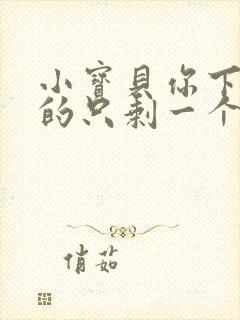 小寶貝你下
的只剩一个
俏茹